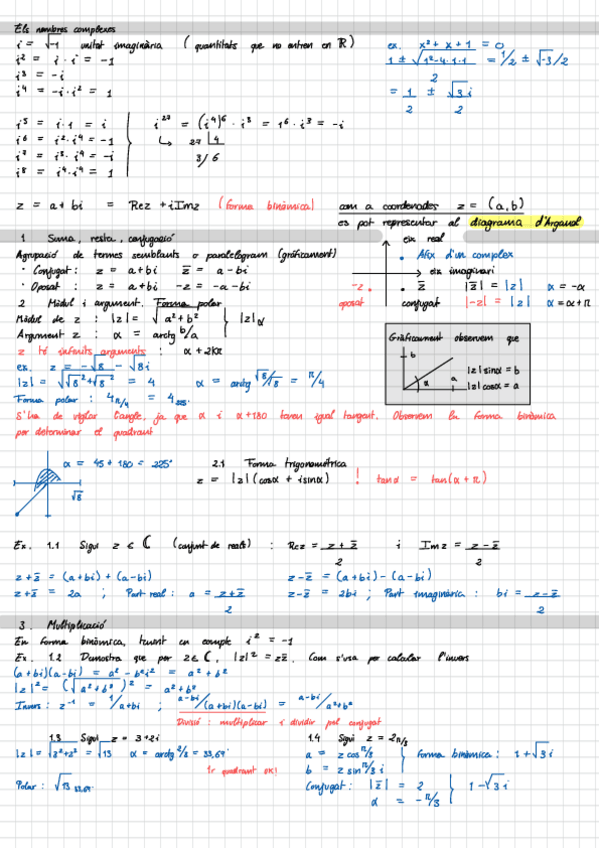 Els nombres complexes
i = √-1 unitat imaginària (quantitats que no entren en ℝ)
i² = i · i = -1
i³ = -i
i⁴ = -i · i² = 1
ex. x² + x + 1 = 0
1 ± √(1² - 4·1·1) / 2 = 1/2 ± √-3/2
= 1/2 ± √3/2 i
i⁵ = i · 1 = i
i⁶ = i² · i⁴ = -1
i⁷ = i³ · i⁴ = -i
i⁸ = i⁴ · i⁴ = 1
i²⁷ = (i⁴)⁶ · i³ = 1⁶ · i³ = -i
↳ 27 |4
3/ 6
z = a + bi = Rez + i Imz (forma binòmica)
com a coordenades z = (a, b)
es pot representar al diagrama d'Argand
1 Suma, resta, conjugació
Agrupació de termes semblants o paral·lelogram (gràficament)
· Conjugat: z = a + bi z̄ = a - bi
· Oposat: z = a + bi -z = -a - bi
eix real
· Afix d'un complex
eix imaginari
-z · · z̄ |z̄| = |z| α = -α
oposat conjugat |-z| = |z| α = α + π
2 Mòdul i argument. Forma polar
Mòdul de z : |z| = √(a² + b²) } |z|α
Argument z : α = arctg b/a
z té infinits arguments : α + 2kπ
ex. z = -√8 - √8 i
|z| = √(√8² + √8²) = 4 α = arctg √8/√8 = π/4
Forma polar : 4 π/4 = 4 225°
Gràficament observem que
b
α a
|z| sinα = b
|z| cosα = a
S'ha de vigilar l'angle, ja que α i α+180 tenen igual tangent. Observem la forma binòmica
per determinar el quadrant
α = 45 + 180 = 225°
√8
2.1 Forma trigonomètrica
z = |z| (cosα + i sinα) ! tanα = tan(α + π)
Ex. 1.1 Sigui z ∈ ℂ (conjunt de reals) : Rez = (z + z̄)/2 i Imz = (z - z̄)/2
z + z̄ = (a + bi) + (a - bi)
z + z̄ = 2a ; Part real : a = (z + z̄)/2
z - z̄ = (a + bi) - (a - bi)
z - z̄ = 2bi ; Part imaginària : bi = (z - z̄)/2
3. Multiplicació
En forma binòmica, tenint en compte i² = -1
Ex. 1.2 Demostra que per z ∈ ℂ, |z|² = z z̄. Com s'usa per calcular l'invers
(a + bi)(a - bi) = a² - b²i² = a² + b²
|z|² = (√(a² + b²))² = a² + b²
Invers : z⁻¹ = 1/a+bi ; a-bi/(a+bi)(a-bi) = a-bi/a²+b²
Divisió : multiplicar i dividir pel conjugat
1.3 Sigui z = 3 + 2i
|z| = √(3² + 2²) = √13 α = arctg 2/3 = 33,69°
1r quadrant ok!
Polar : √13 33,69°
1.4 Sigui z = 2 π/3
a = z cos π/3 } forma binòmica : 1 + √3 i
b = z sin π/3 i
Conjugat : |z̄| = 2 } 1 - √3 i
α = -π/3